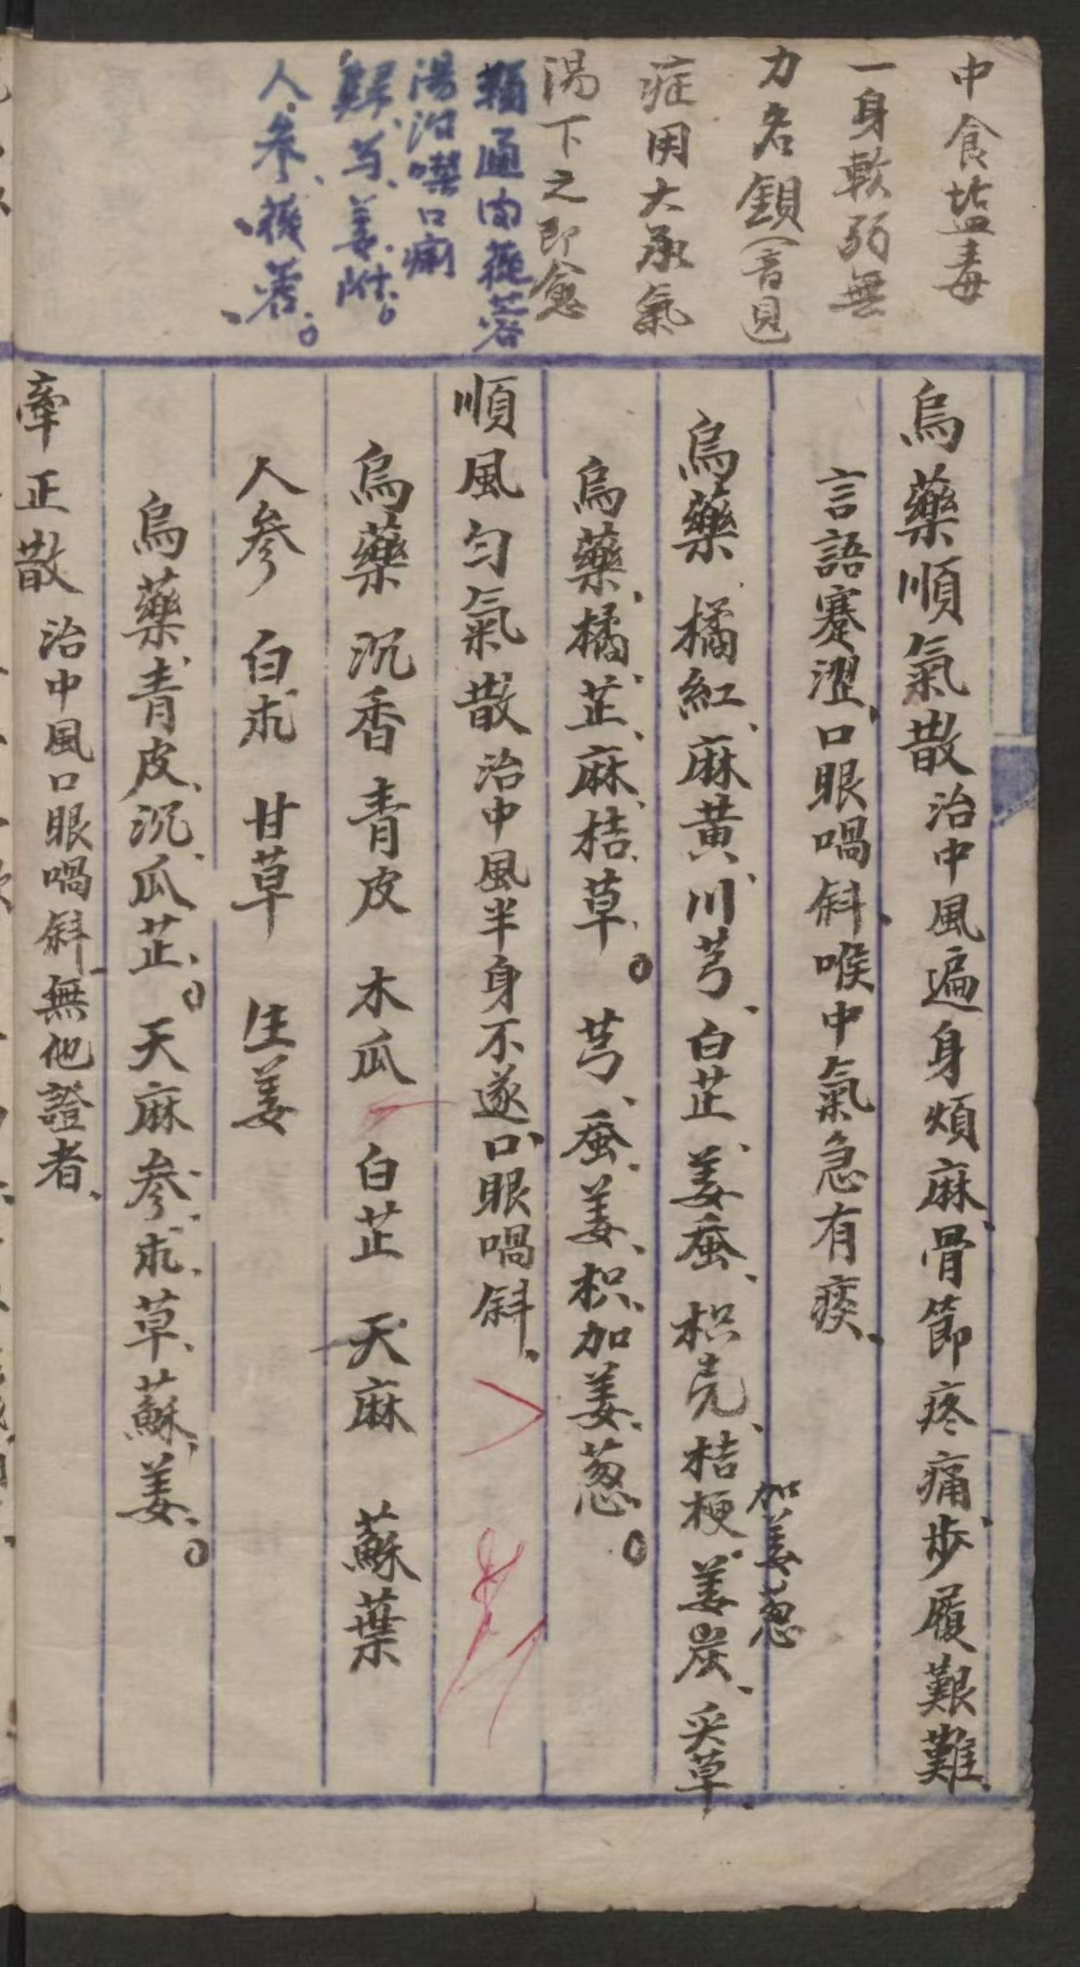 中食盐毒
一身軟弱無
力名鎖(音見)
症用大承氣
湯下之即愈
通由蓰蓉
湯治噤口痢
姜附。
人、参、蓯、蓉。
烏藥順氣散治中風遍身煩麻、骨節疼痛、步履艱難、
言語蹇澀、口眼喎斜、喉中氣急有痰、
加姜葱
烏藥 橘紅、麻黄、川芎、白芷、姜蚕、枳壳、桔梗、姜炭、炙草、
烏藥、橘、芷、麻、桔、草。芎、蚕、姜、枳、加姜、葱。
順風匀氣散治中風半身不遂、口眼喎斜、
烏藥 沉香 青皮 木瓜 白芷 天麻 蘇葉
人参 白朮 甘草 生姜
烏藥、青皮、沉、瓜、芷、。天麻参、朮、草、蘇、姜、。
牽正散 治中風口眼喎斜、無他證者、